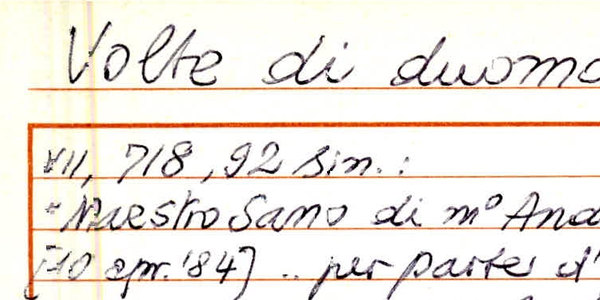 Volte di duomo
VII, 718, 92 sin.:
"Maestro Sano di m° And
[10 apr. '84] .. per parte d'